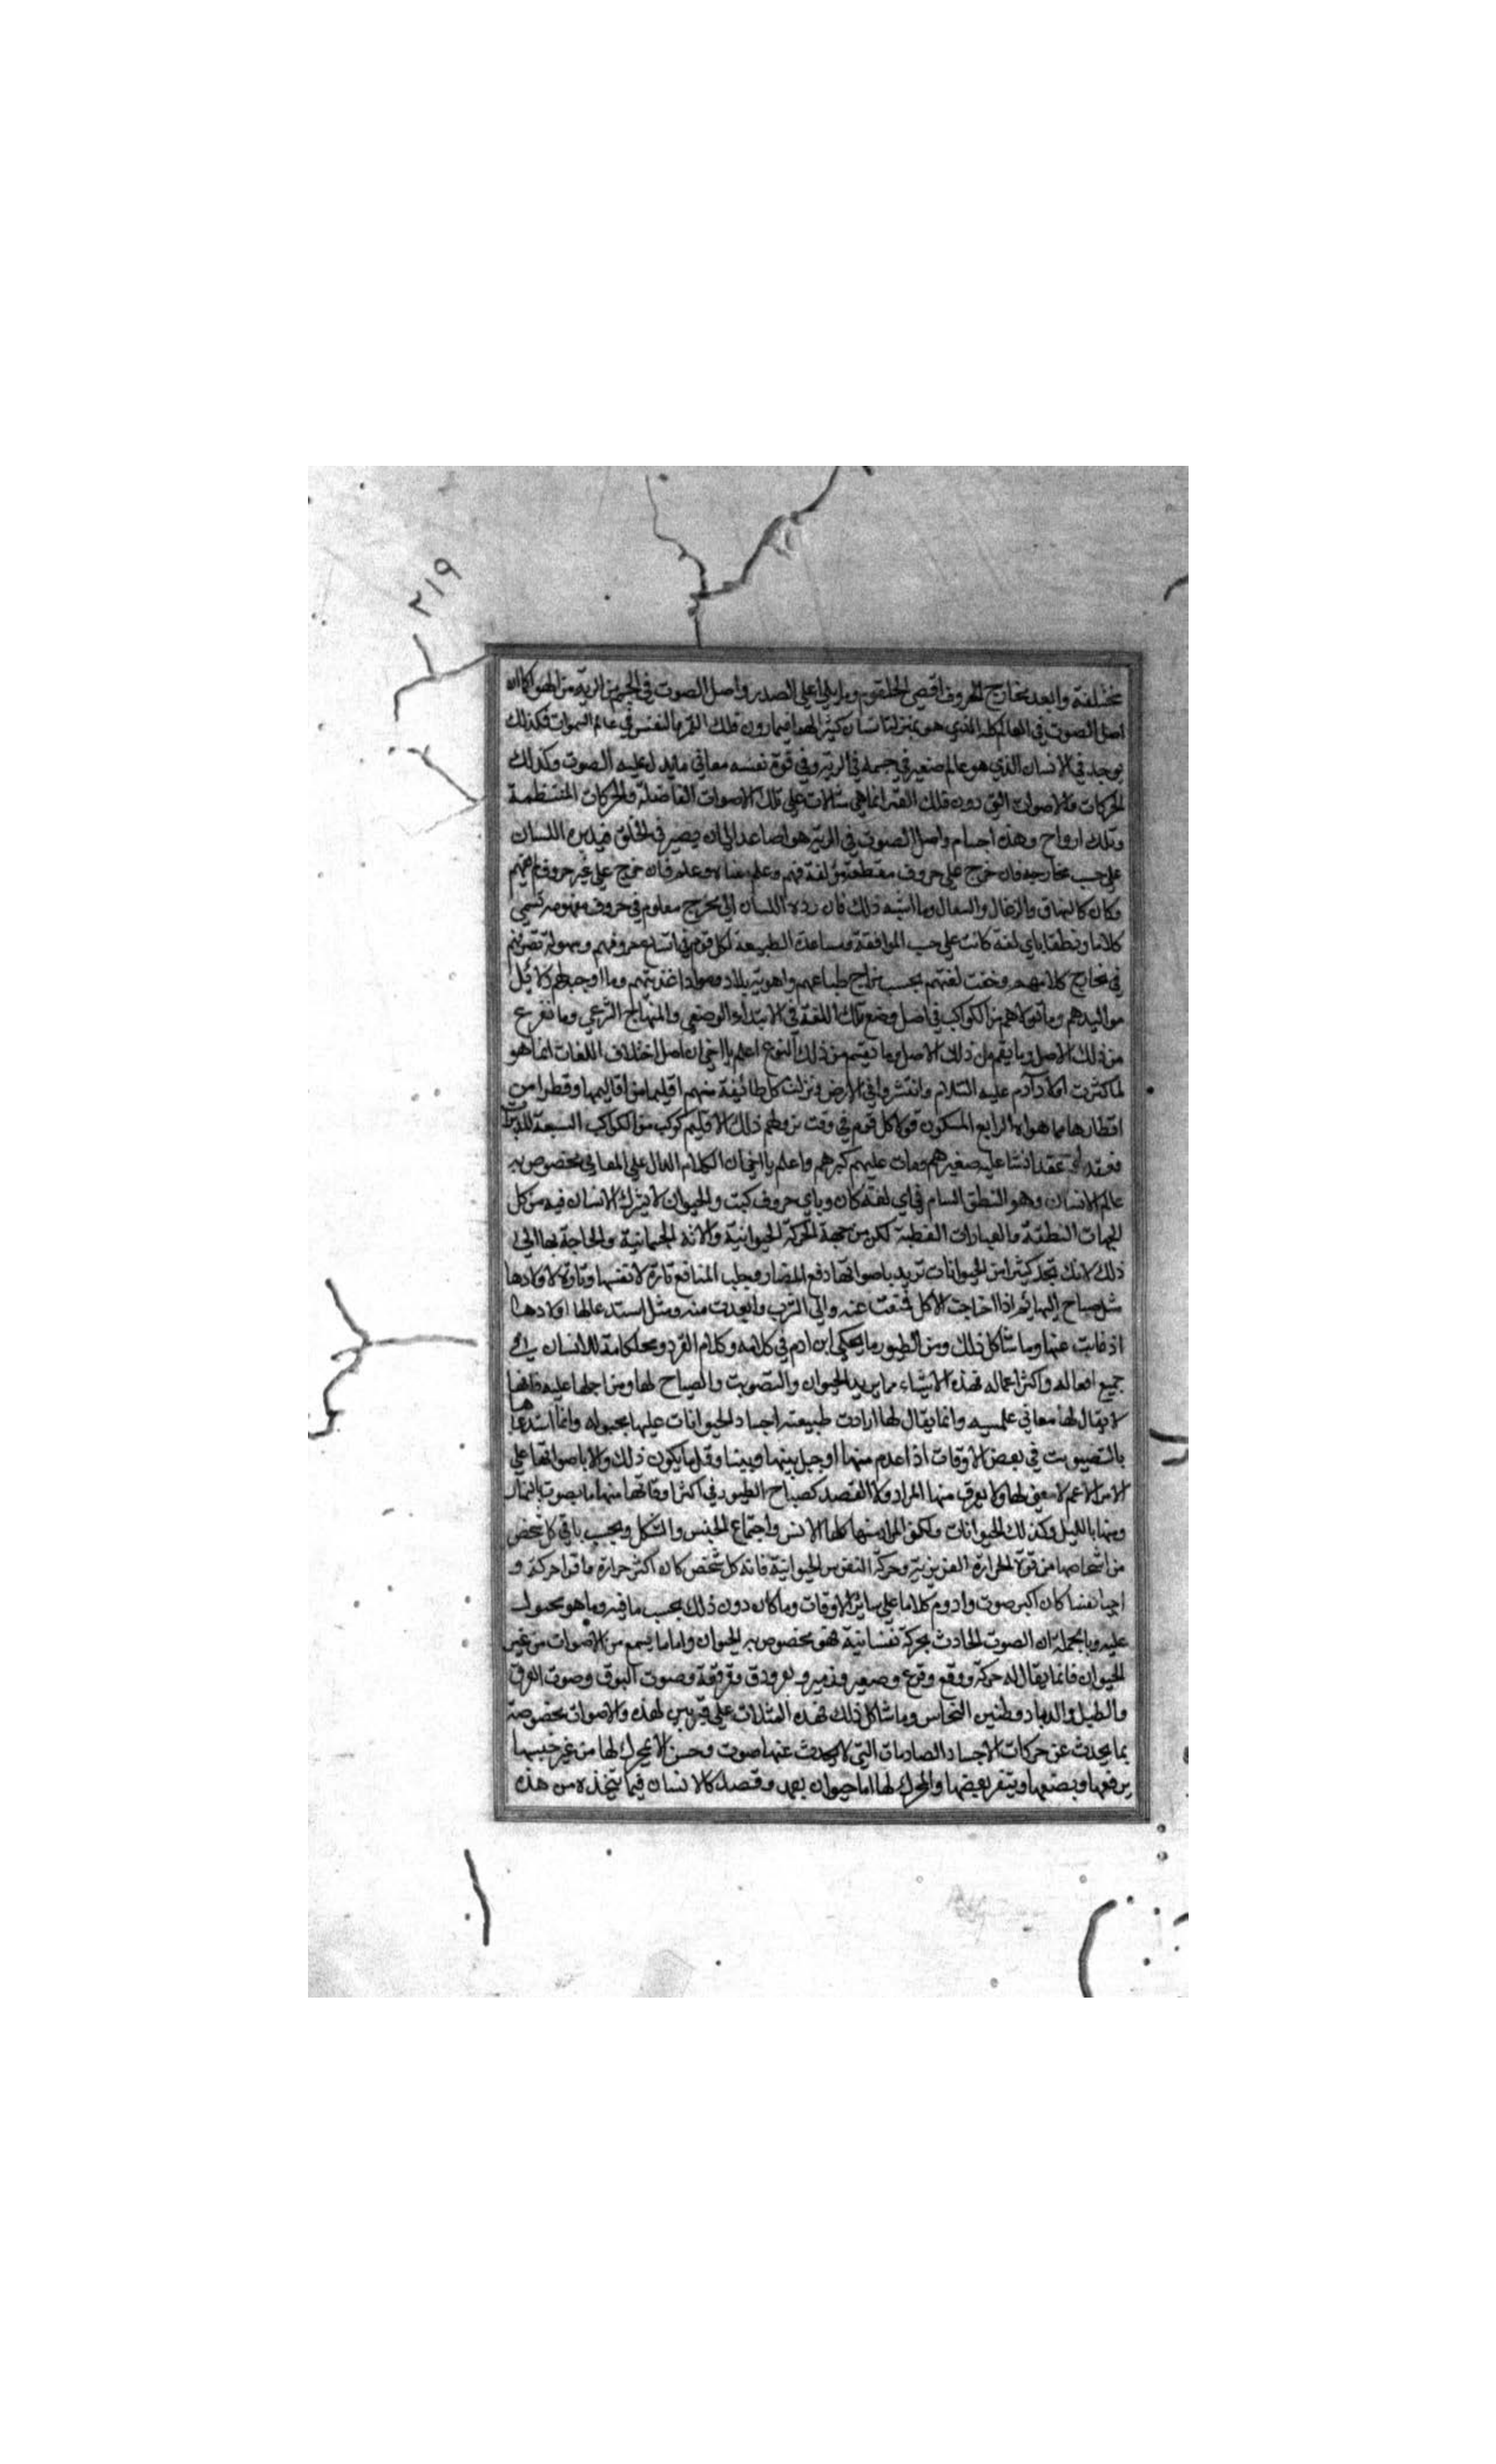 ٢١٩
مختلفة وابعد مخارج الحروف اقصى الحلقوم وما يلي اعلى الصدر واصل الصوت في الجسم من الرية من الهوا كما ان
اصل الصوت في العالم كله الذي هو بمنزلة انسان كبير الهوا فيما دون فلك القمر والنفس في عالم السموات فكذلك
يوجد في الانسان الذي هو عالم صغير في جسمه في الرية وفي قوة نفسه معاني ما يدل عليه الصوت وكذلك
الحركات والاصوات التي دون فلك القمر انما هي مثالات على تلك الاصوات الفاضلة والحركات المنتظمة
وتلك ارواح وهذه اجسام واصل الصوت في الرية هوا صاعد الى ان يصير في الحلق فيديره اللسان
على حسب مخارجه فان خرج على حروف مقطعة مؤلفة فهم وعلم معناه وعلم فان خرج على غير حروف لم يفهم
وكان كالنهاق والرغاء والسعال وما اشبه ذلك فان رده اللسان الى مخرج معلوم في حروف مفهومه تسمى
كلاما ونطقا باي لغة كانت على حسب الموافقة ومساعدة الطبيعة لكل قوم في اتساع حروفهم وسهولة تصرفهم
في مخارج كلامهم وخفت لغتهم بحسب مزاج طباعهم واهوية بلادهم ومواد اغذيتهم وما اوجبه لهم دلائل
مواليدهم وما تولاهم من الكواكب في اصل وضع تلك اللغة في الابتداء الوضعي والمنهاج الشرعي وما تفرع
من ذلك الاصل وما ينقسم من ذلك النوع اعلم يا اخي ان اصل اختلاف اللغات انما هو
لما كثرت اولاد آدم عليه السلام وانتشروا في الارض ونزلت كل طائفة منهم اقليما من اقاليمها وقطرا من
اقطارها مما هو له الرابع المسكون تولا كل قوم في وقت نزولهم ذلك الاقليم كوكب من الكواكب السبعة المدبرات
فعقد لهم عقدا نشا عليه صغيرهم ومات عليهم كبيرهم واعلم يا اخي ان الكلام الدال على المعاني مخصوص به
عالم الانسان وهو النطق التام في اي لغة كان وباي حروف كتبت والحيوان لا يشرك الانسان فيه من كل
الجهات النطقية والعبارات اللفظية لكن من جهة الحركة الحيوانية والآلة الجسمانية والحاجة بها الى
ذلك لانك تجد كثيرا من الحيوانات تريد باصواتها دفع المضار وجلب المنافع تارة لانفسها وتارة لاولادها
مثل صياح البهائم اذا احتاجت الاكل فمنعت عنه والى الشرب وابعدت منه ومثل استدعائها اولادها
اذ غابت عنها وما شاكل ذلك ومن الطيور ما يحكي ابن ادم في كلامه وكلام القرد ومحاكاته للانسان في
جميع افعاله واكثر اعماله فهذه الاشياء مما يريد الحيوان والتصويت والصياح لها ومن اجلها عليه فانها
لا يقال لها معاني علمية وانما يقال لها ارادت طبيعته اجساد الحيوانات عليها مجبوله وانما استدعاها
بالتصويت في بعض الاوقات اذا عدم منها او حيل بينها وبينها وقل ما يكون ذلك والا باصواتها على
الامر الاعم لا معنى لها ولا يعرف منها المراد ولا القصد كصياح الطيور في اكثر اوقاتها منها ما يصوت بالنهار
ومنها بالليل وكذلك الحيوانات ولكن المراد منها كلها الانس واجتماع الجنس والشكل وبحسب ما في كل شخص
من اشخاصها من قوة الحرارة الغريزية وحركة النفس الحيوانية فانه كل شخص كان اكثر حرارة واقوا حركة و
احيا نفسا كان اكبر صوت وادوم كلاما على سائر الاوقات وما كان دون ذلك بحسب ما فيه وما هو مجبول
عليه وبالجملة ان الصوت الحادث بحركة نفسانية فهو مخصوص به الحيوان واما ما يسمع من الاصوات من غير
الحيوان فانما يقال له حركة ووقع وقرع وصفير وزمير ونقر ودق وقرقعة وصوت البوق وصوت
والطبل والدبادب وطنين النحاس وما شاكل ذلك فهذه المثلات على قسمين لهذه والاصوات مخصوصة
بما يحدث عن حركات الاجساد الصادمات التي لا يحدث عنها صوت وحس الا بمحرك لها من غير جنسها
يرفعها ويضعها وينقر بعضها والمحرك لها اما حيوان بعمد وقصد كالانسان فيما يتخذه من هذه